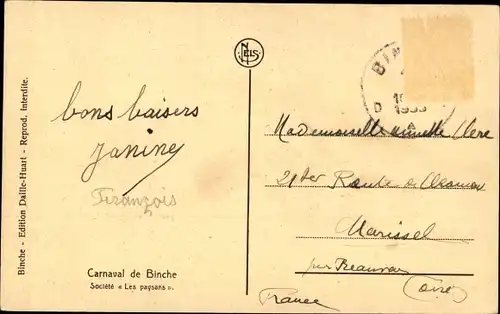 Binche - Edition Dailie-Huart - Reprod. Interdite.
NELS
BIN
D
A
bons baisers
Janine
François
Carnaval de Binche
Société « Les paysans ».
Mademoiselle
21ter Route de
Marissel
par Beauvais
(Oise)
France